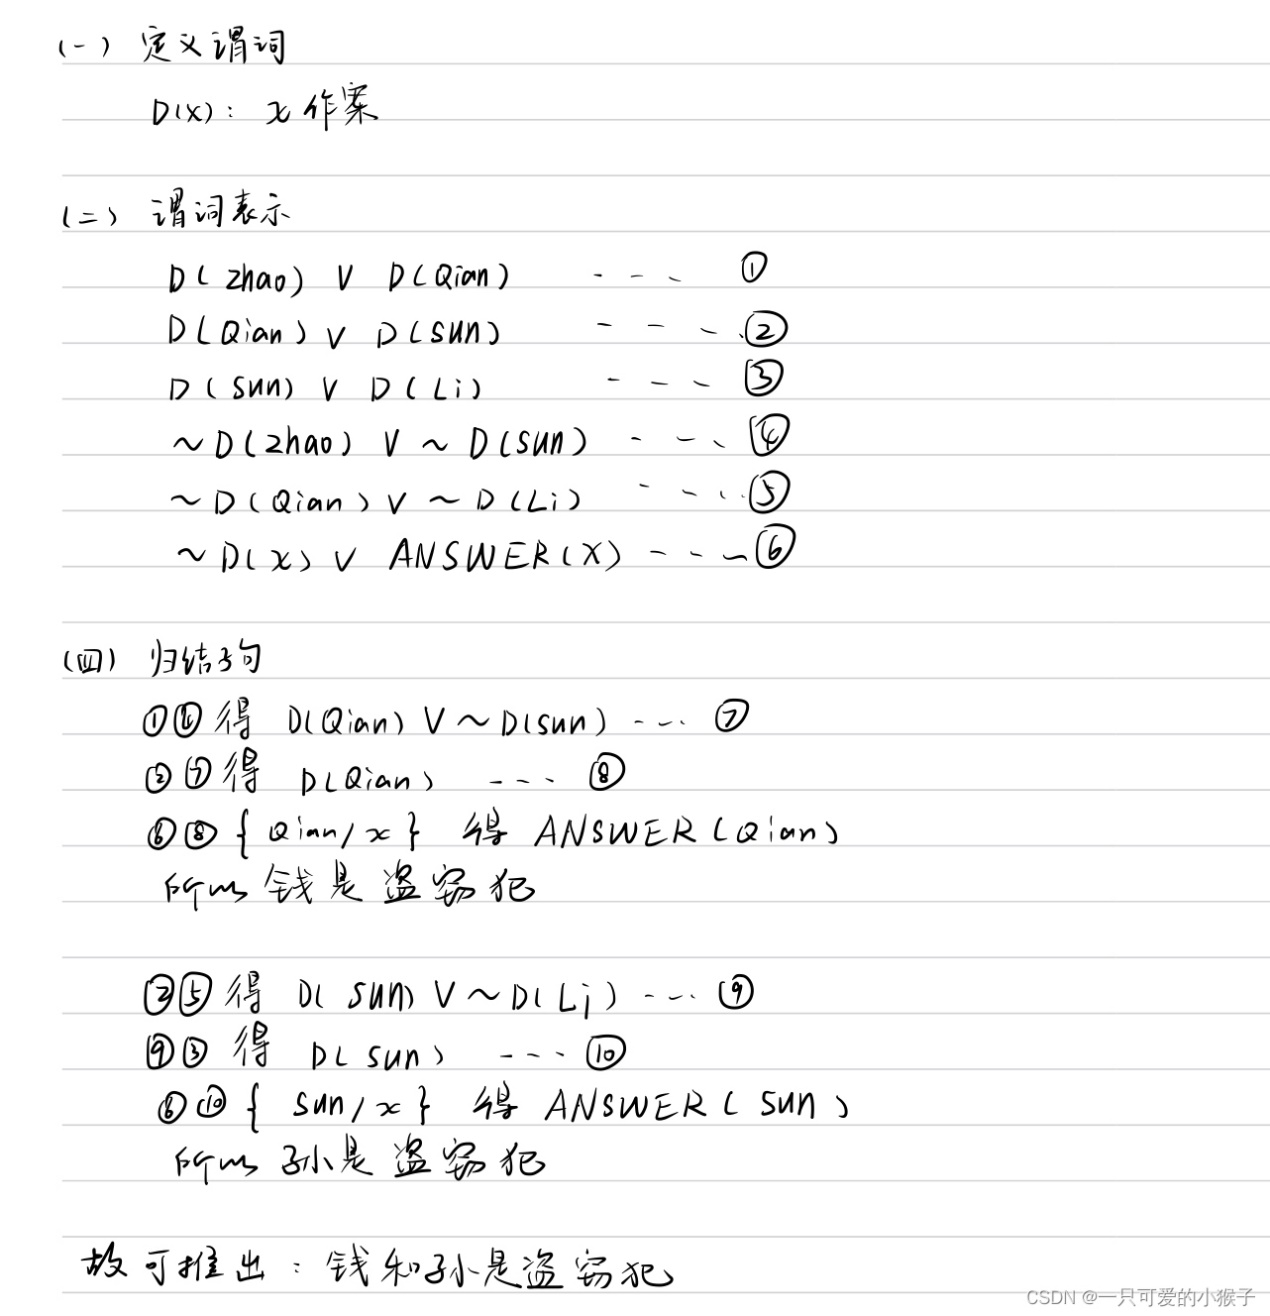 (一) 定义谓词
D(x): x作案
(二) 谓词表示
D(zhao) ∨ D(Qian) --- ①
D(Qian) ∨ D(sun) --- ②
D(sun) ∨ D(Li) --- ③
~D(zhao) ∨ ~D(sun) --- ④
~D(Qian) ∨ ~D(Li) --- ⑤
~D(x) ∨ ANSWER(x) --- ⑥
(四) 归结子句
①④得 D(Qian) ∨ ~D(sun) --- ⑦
②⑦得 D(Qian) --- ⑧
⑥⑧{Qian/x} 得 ANSWER(Qian)
所以 钱是盗窃犯
②⑤得 D(sun) ∨ ~D(Li) --- ⑨
⑨③得 D(sun) --- ⑩
⑥⑩{sun/x} 得 ANSWER(sun)
所以 孙是盗窃犯
故可推出: 钱和孙是盗窃犯
CSDN @一只可爱的小猴子